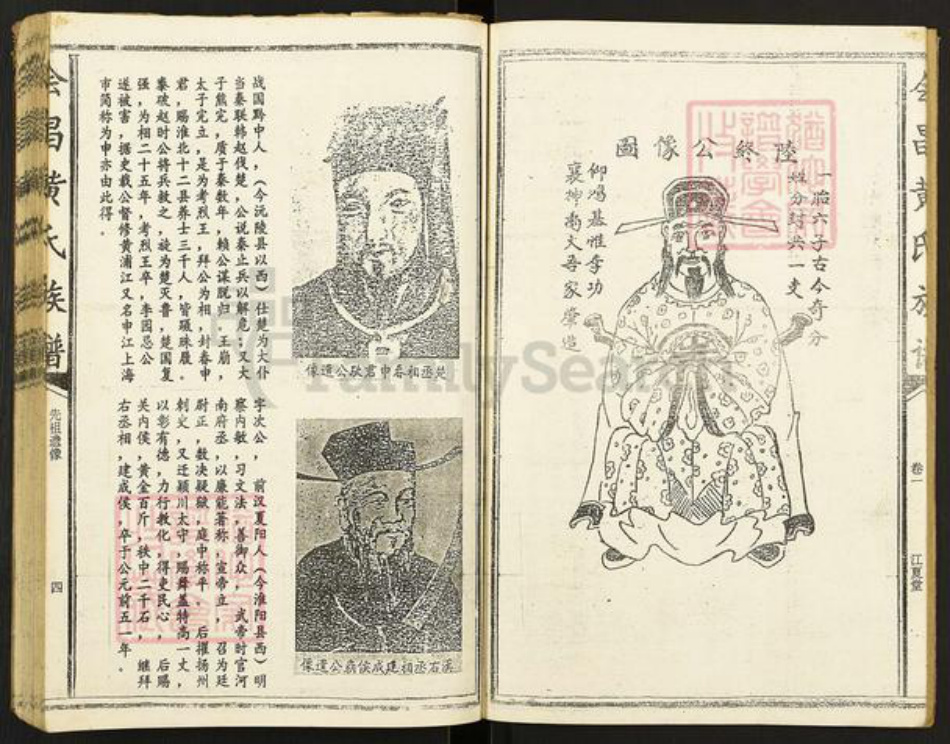 会昌黄氏族谱
陸終公像圖
一胎六子古今奇分
姓分封共一支
仰鴻基惟季功
裹坤裔大吾家肇造
卷一
江夏堂
战国黔中人,(今沅陵县以西)仕楚为大仆
当秦联韩赵伐楚,公说秦止兵以解危;又大
子熊完,质于秦数年,赖公谋脱归,王崩,
太子完立,是为考烈王,拜公为相,封春申
君,赐淮北十二县养士三千人,皆蹑珠履。
秦破赵时公将兵救之,旋为楚灭鲁,楚国复
强,为相二十五年,考烈王卒,李园忌公
遂被害,据史载公督修黄浦江又名申江上海
市简称为申亦由此得。
楚丞相春申君歇公遗像
字次公,前汉夏阳人(今淮阳县西)明
察内敏,习文法,善御众,武帝时官河
南府丞,以廉能著称,宣帝立,召为廷
尉正,数决疑狱,庭中称平,后擢扬州
刺史,又迁颍川太守,赐车盖特高一丈,
以彰有德,力行教化,得吏民心,后赐
关内侯,黄金百斤,秩中二千石,继拜
右丞相,建成侯,卒于公元前五一年。
漢右丞相建成侯霸公遺像
会昌黄氏族譜
先祖遗像
四
FamilySearch